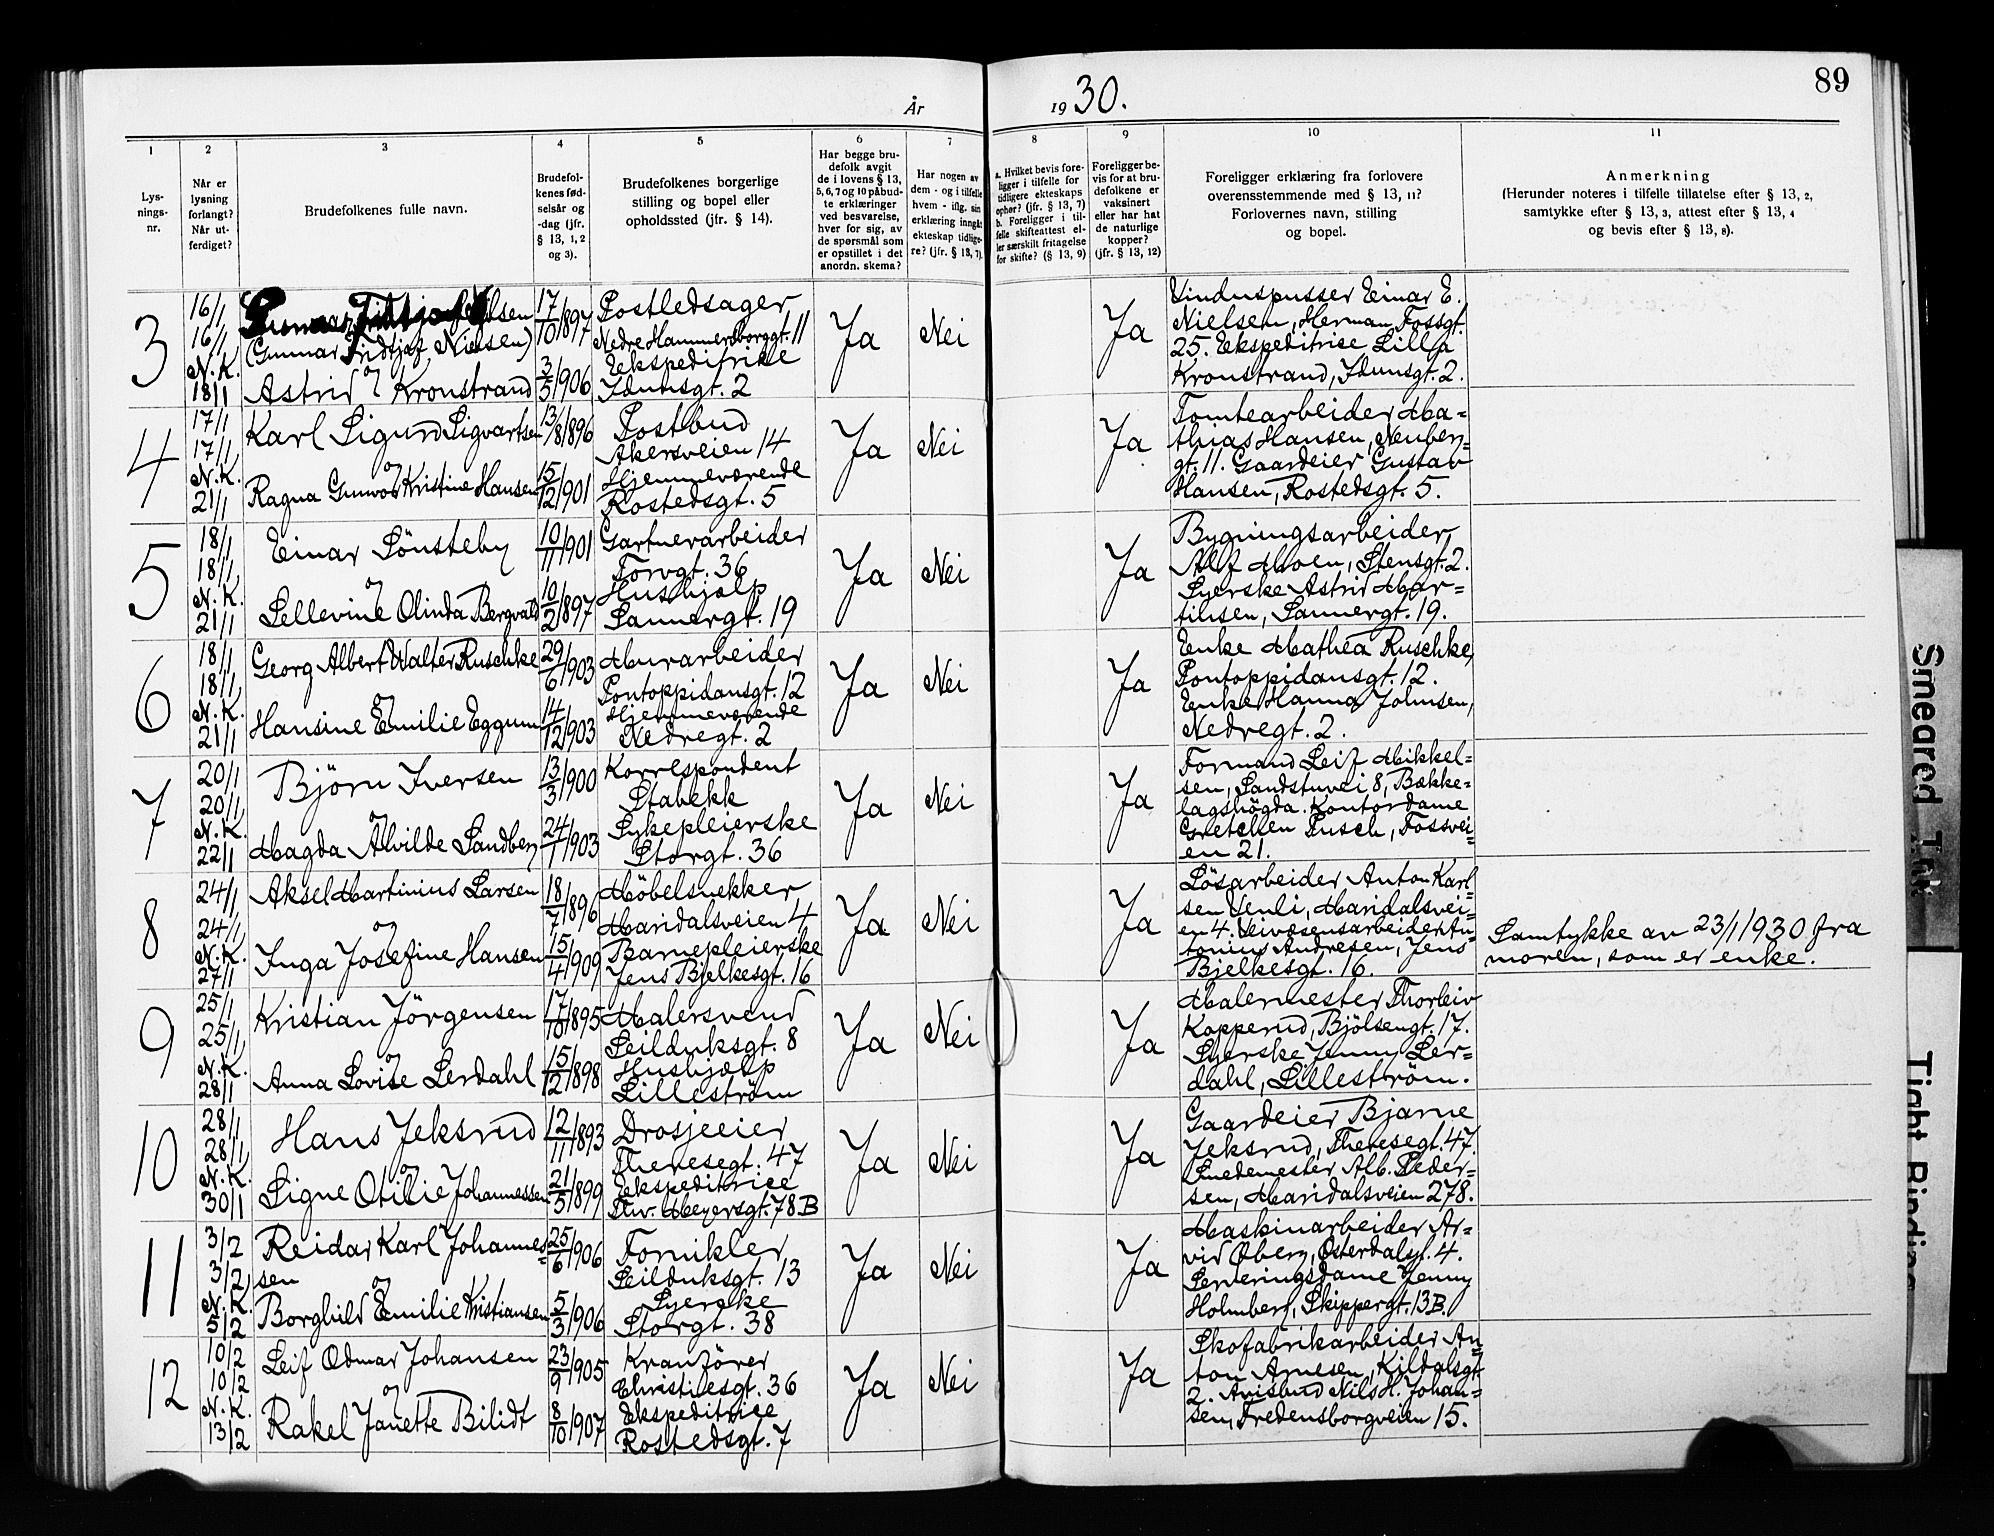 År 1930.
89
1
2
3
4
5
6
7
8
9
10
11
Lys-
nings-
nr.
Når er
lysning
forlangt?
Når ut-
ferdiget?
Brudefolkenes fulle navn.
Brudefol-
kenes fød-
selsår og
-dag (jfr.
§ 13, 1, 2
og 3).
Brudefolkenes borgerlige
stilling og bopel eller
opholdssted (jfr. § 14).
Har begge bru-
defolk avgit
de i lovens § 13,
5, 6, 7 og 10 påbud-
te erklæringer
ved besvarelse,
hver for sig, av
de spørsmål som
er opstillet i det
anordn. skema?
Har nogen av
dem - og i tilfelle
hvem - iflg. sin
erklæring inngåt
ekteskap tidlige-
re? (jfr. § 13, 7).
a. Hvilket bevis fore-
ligger i tilfelle for
tidligere ekteskaps
ophør? (jfr. § 13, 7)
b. Foreligger i til-
felle skifteattest el-
ler særskilt fritagelse
for skifte? (§ 13, 9)
Foreligger be-
vis for at bru-
defolkene er
vaksinert
eller har hat
de naturlige
kopper?
(jfr. § 13, 12)
Foreligger erklæring fra forlovere
overensstemmende med § 13, 11?
Forlovernes navn, stilling
og bopel.
Anmerkning
(Herunder noteres i tilfelle tillatelse efter § 13, 2,
samtykke efter § 13, 3, attest efter § 13, 4
og bevis efter § 13, 8).
3
16/1
16/1
N.K.
18/1
(Gunnar Fridtjof Nielsen)
og
Astrid Kronstrand
17/10 1897
3/5 1906
Postledsager
Nedre Hammersborggt. 11
Ekspeditrise
Idunsgt. 2
Ja
Nei
Ja
Vinduspusser Einar E.
Nielsen, Herman Fossgt.
25. Ekspeditrise Lilly
Kronstrand, Idunsgt. 2.
4
17/1
17/1
N.K.
21/1
Karl Sigurd Sigvartsen
og
Ragna Gunvor Kristine Hansen
13/8 1896
15/12 1901
Postbud
Akersveien 14
Hjemmeværende
Rostedsgt. 5
Ja
Nei
Ja
Tomtearbeider Ma=
thias Hansen, Neuber=
gt. 11. Gaardeier Gustav
Hansen, Rostedsgt. 5.
5
18/1
18/1
N.K.
21/1
Einar Sönsteby
og
Sellevine Olinda Bergvald
10/11 1901
10/2 1897
Gartnerarbeider
Torvgt. 36
Hushjælp
Sannergt. 19
Ja
Nei
Ja
Bygningsarbeider
Alf Moen, Stensgt. 2.
Syerske Astrid Mar=
tinsen, Sannergt. 19.
6
18/1
18/1
N.K.
21/1
Georg Albert Walter Ruschke
og
Hansine Emilie Eggum
29/6 1903
14/12 1903
Murarbeider
Pontoppidansgt. 12
Hjemmeværende
Nedregt. 2
Ja
Nei
Ja
Enke Mathea Ruschke,
Pontoppidansgt. 12.
Enke Hanna Johnsen,
Nedregt. 2.
7
20/1
20/1
N.K.
22/1
Björn Iversen
og
Magda Alvilde Sandberg
13/3 1900
24/1 1903
Korrespondent
Stabekk
Sykepleierske
Storgt. 36
Ja
Nei
Ja
Formand Leif Mikkel=
sen, Sandstuvei 8, Bække=
lagshögda. Kontordame
Gretchen Pusch, Fossvei=
en 21.
8
24/1
24/1
N.K.
27/1
Aksel Martinius Larsen
og
Inga Josefine Hansen
18/7 1896
15/4 1909
Möbelsnekker
Maridalsveien 4
Barnepleierske
Jens Bjelkesgt. 16
Ja
Nei
Ja
Lösarbeider Anton Karl=
sen Venli, Maridalsvei=
en 4. Veivæsensarbeider An=
tonius Andresen, Jens
Bjelkesgt. 16.
Samtykke av 23/1 1930 fra
moren, som er enke.
9
25/1
25/1
N.K.
28/1
Kristian Jörgensen
og
Anna Lovise Lerdahl
17/10 1895
15/12 1898
Malersvend
Seilduksgt. 8
Hushjælp
Lilleström
Ja
Nei
Ja
Malermester Thorleiv
Kopperud, Bjölsengt. 17.
Syerske Jenny Ler=
dahl, Lilleström.
10
28/1
28/1
N.K.
30/1
Hans Jeksrud
og
Signe Otilie Johannessen
12/11 1893
21/5 1899
Drosjeeier
Theresegt. 47
Ekspeditrice
Thv. Meyersgt. 78 B
Ja
Nei
Ja
Gaardeier Bjarne
Jeksrud, Theresegt. 47.
Smedemester Alb. Peder=
sen, Maridalsveien 278.
11
3/2
3/2
N.K.
5/2
Reidar Karl Johannes=
sen
og
Borghild Emilie Kristiansen
25/6 1906
5/3 1906
Fornikler
Seilduksgt. 13
Syerske
Storgt. 38
Ja
Nei
Ja
Maskinarbeider Ar=
vid Öberg, Österdalsgt. 4.
Serveringsdame Jenny
Holmberg, Skippergt. 13 B.
12
10/2
10/2
N.K.
13/2
Leif Odmar Johansen
og
Rakel Janette Bilidt
23/9 1905
8/10 1907
Kranförer
Christiesgt. 36
Ekspeditrice
Rostedsgt. 7
Ja
Nei
Ja
Skofabrikarbeider An=
ton Arnesen, Kildalsgt.
2. Avisbud Nils H. Johan=
sen, Fredensborgveien 15.
Smeared Ink
Tight Binding